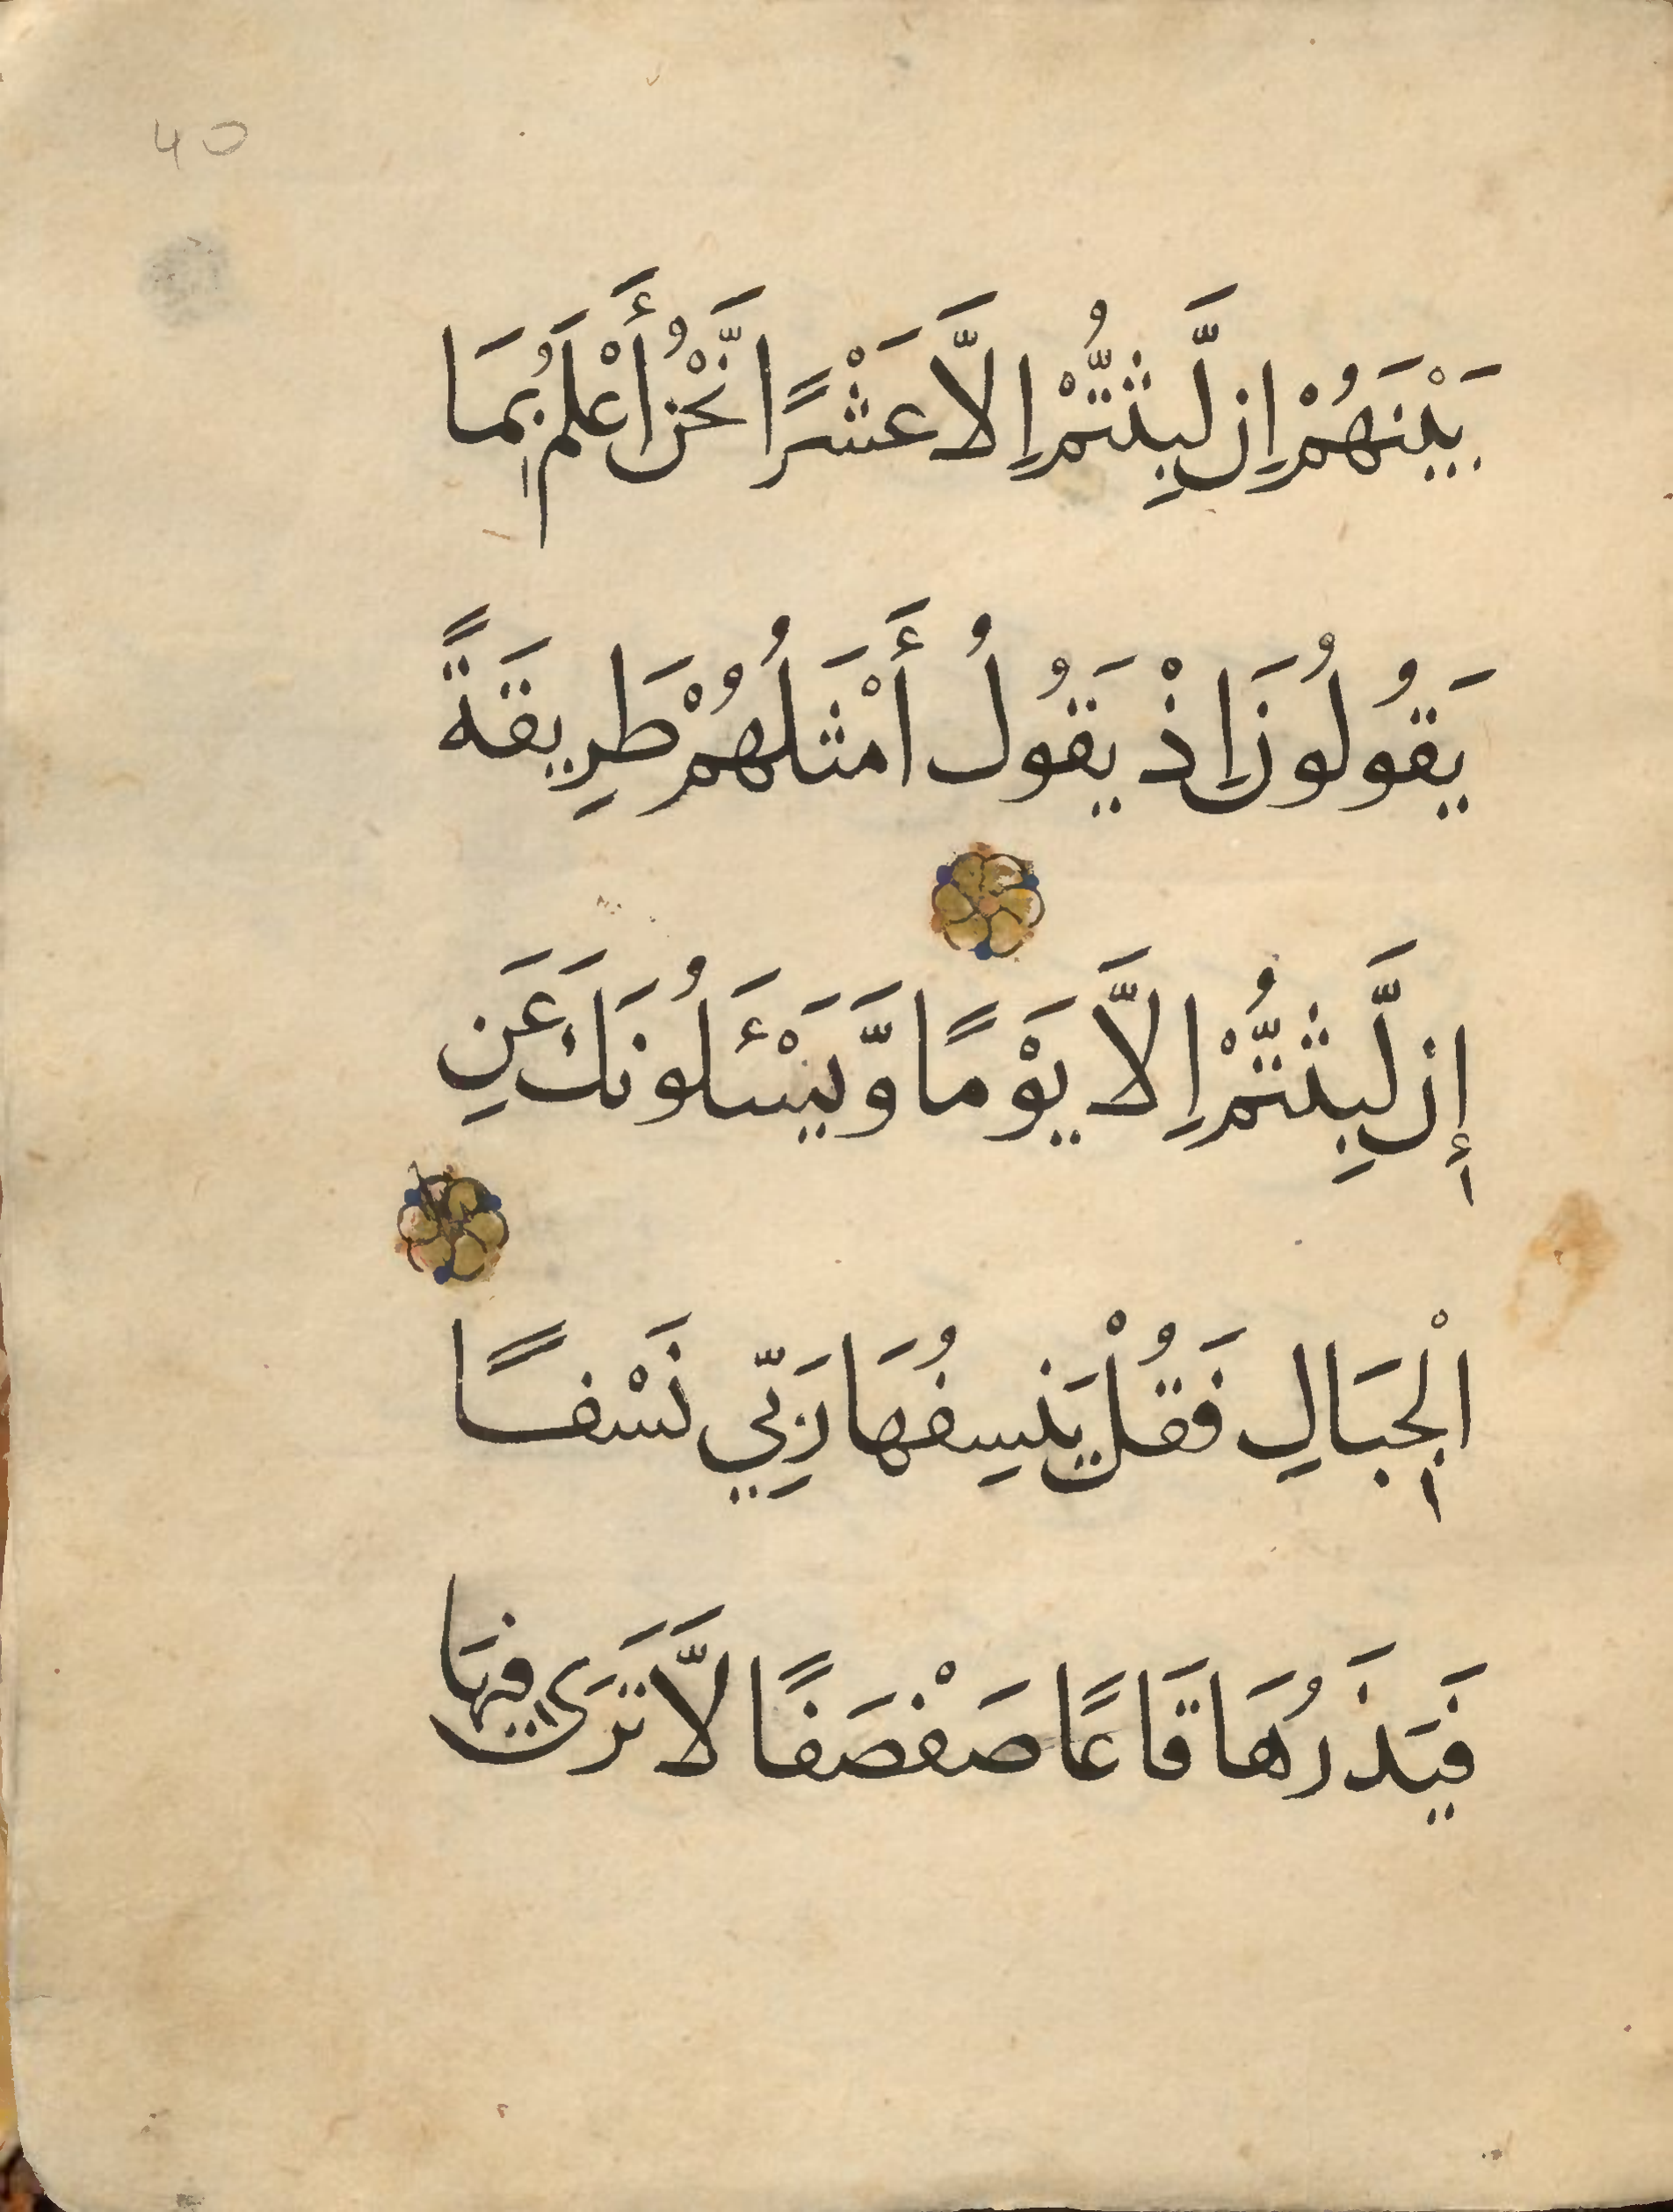 40
بَيْنَهُمْ اِن لَّبِثْتُّمْ اِلَّا عَشْرًا نَّحْنُ أَعْلَمُ بِمَا
يَقُولُونَ اِذْ يَقُولُ أَمْثَلُهُمْ طَرِيقَةً
إِن لَّبِثْتُّمْ اِلَّا يَوْمًا وَّيَسْـَٔلُونَكَ عَنِ
الْجِبَالِ فَقُلْ يَنسِفُهَا رَبِّي نَسْفًا
فَيَذَرُهَا قَاعًا صَفْصَفًا لَّا تَرَىٰ فِيهَا